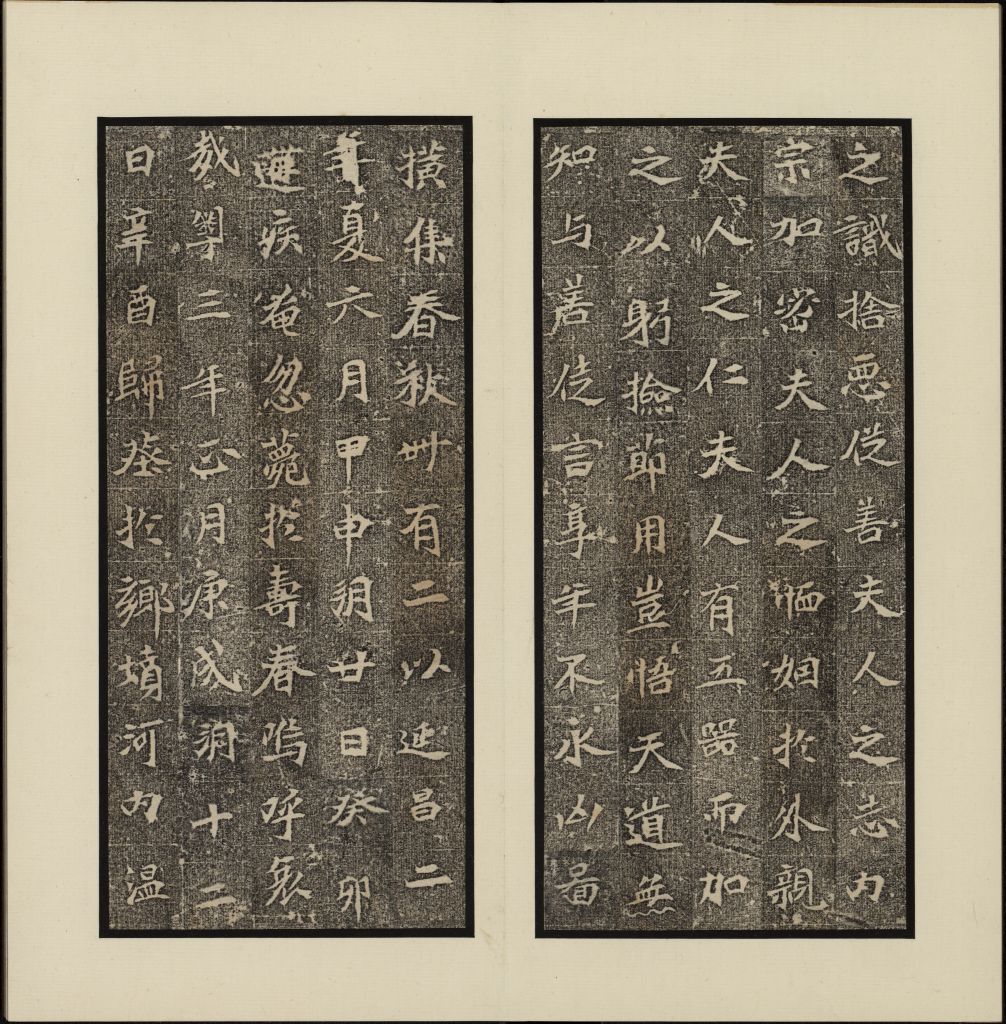 之識捨惡從善夫人之志內
宗加密夫人之恤姻於外親
夫人之仁夫人有五器而加
之以躬撿節用豈悟天道無
知与善徒言享年不永凶啚
橫集春秋卌有二以延昌二
年夏六月甲申朔廿日癸卯
遘疾奄忽薨於壽春嗚呼哀
哉粵三年正月庚戌朔十二
日辛酉歸葬於鄉墳河內温